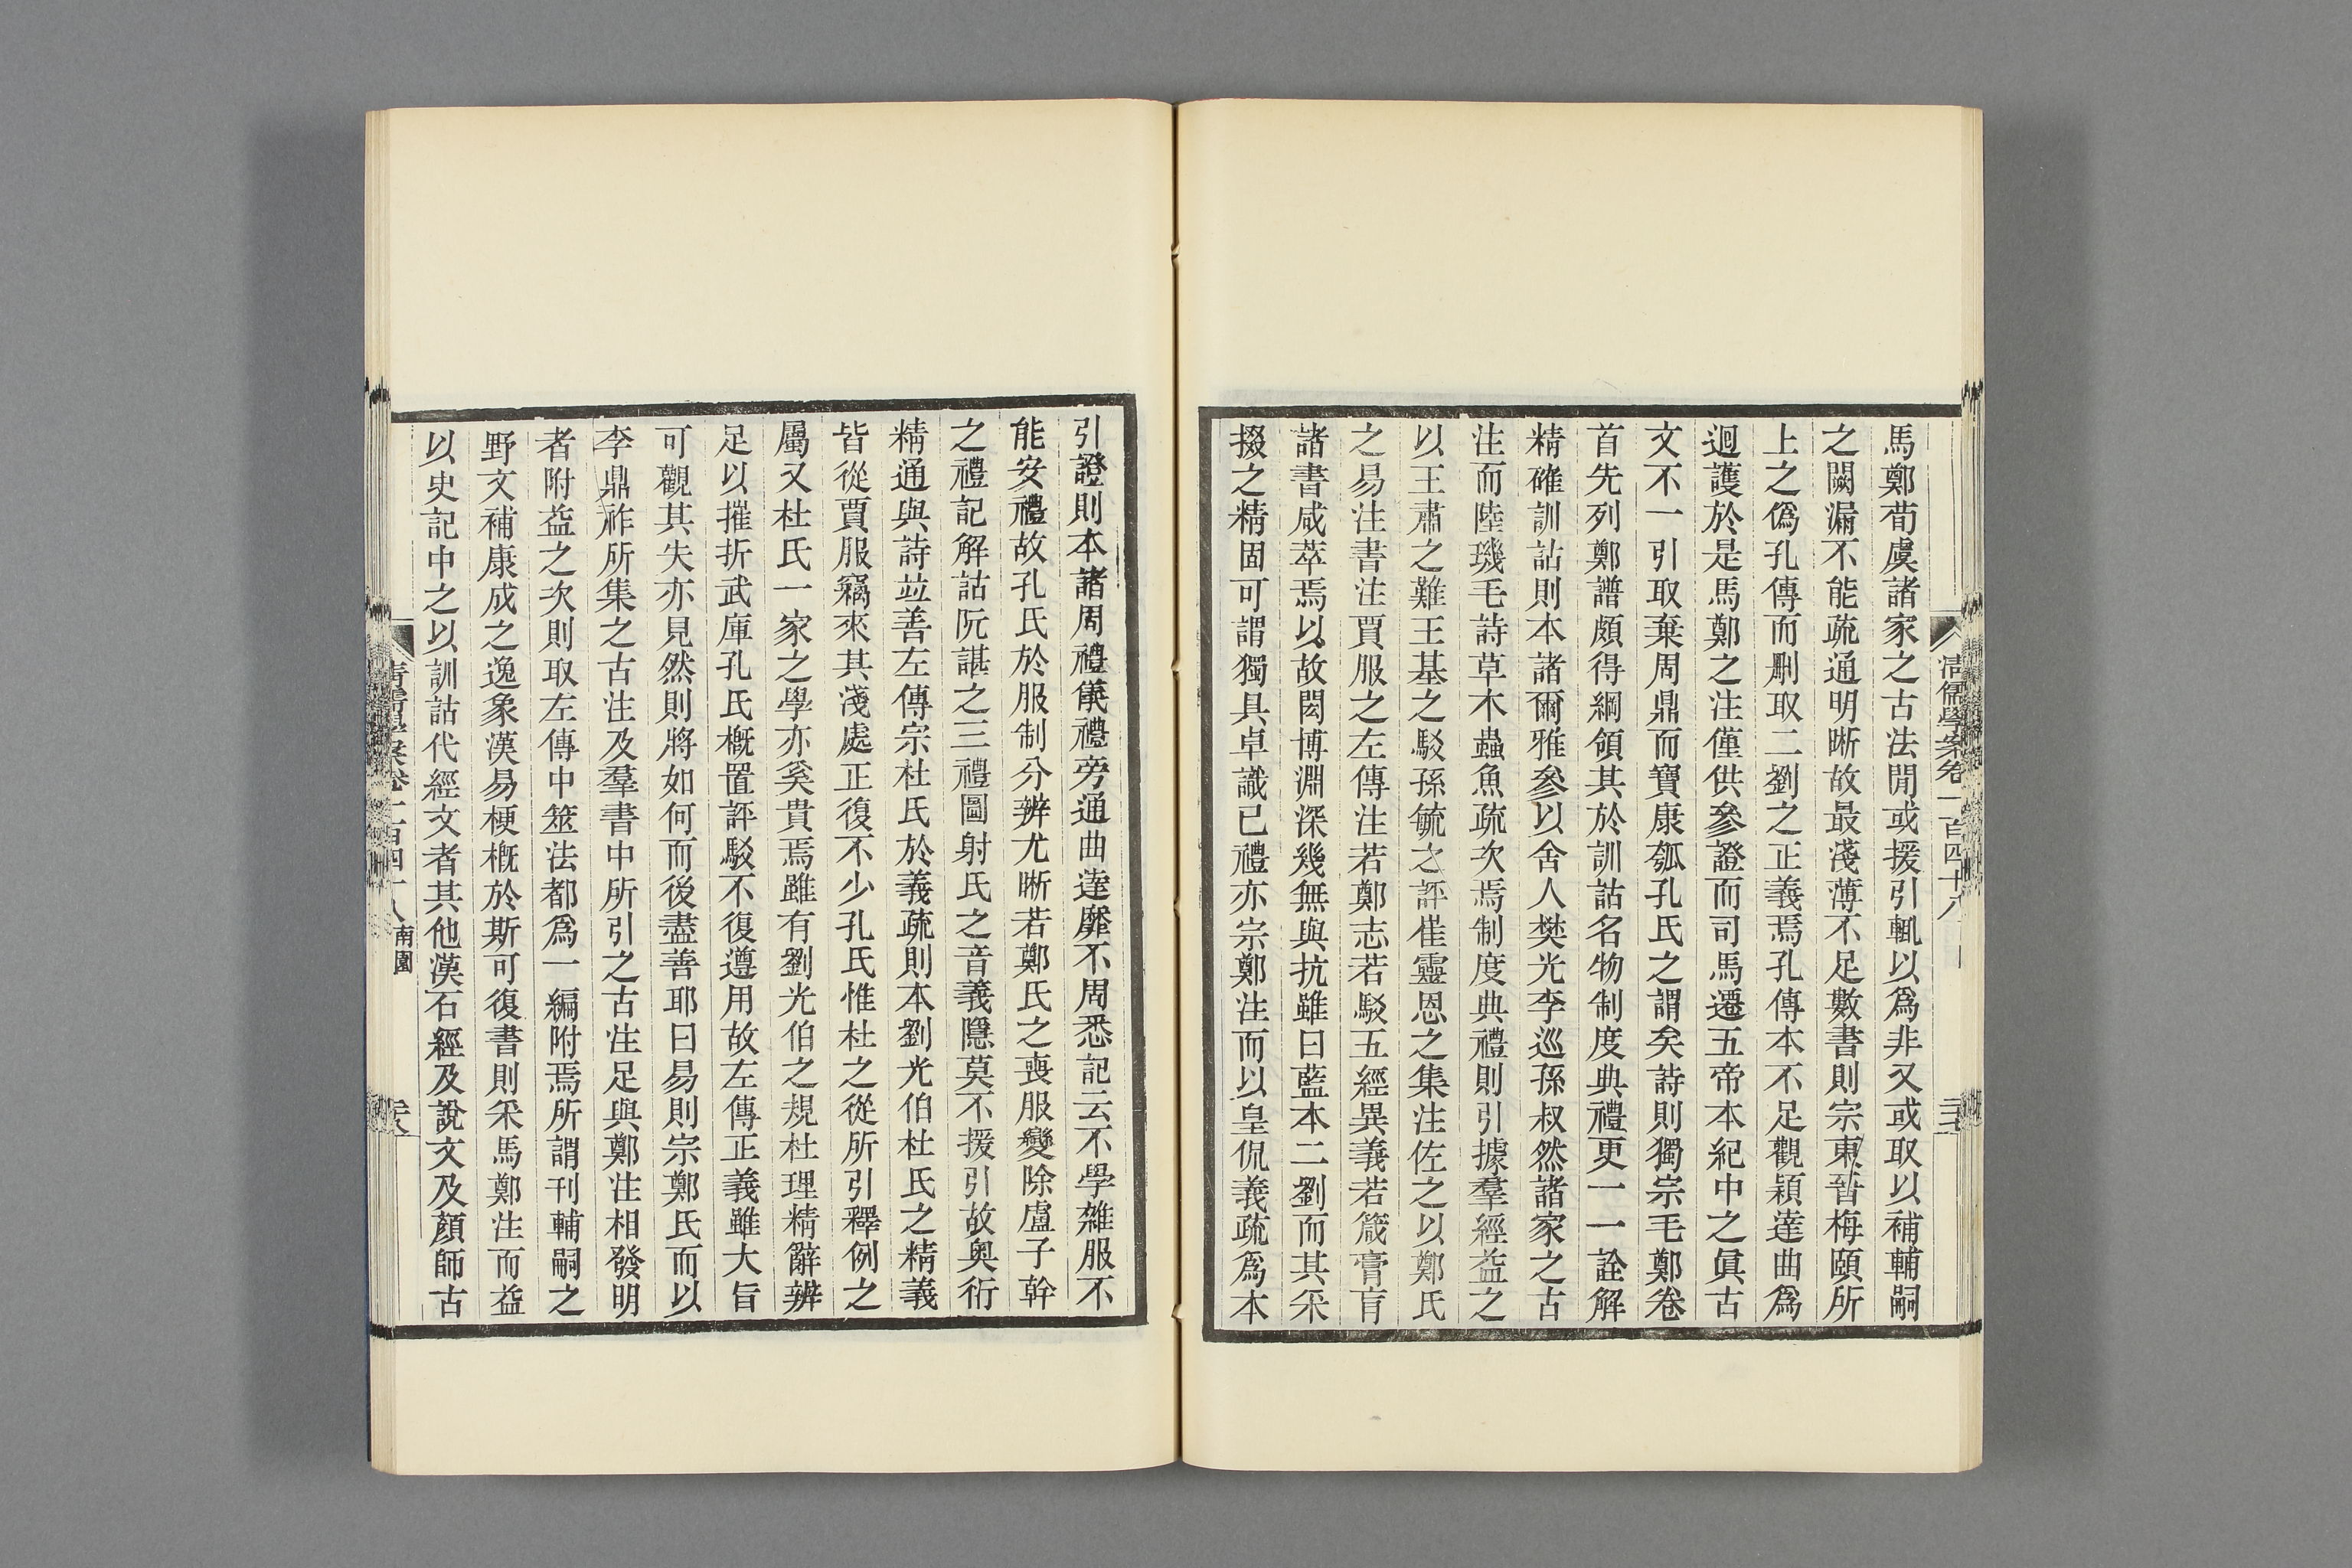 馬鄭荀虞諸家之古法閒或援引輒以爲非又或取以補輔嗣
之闕漏不能疏通明晰故最淺薄不足數書則宗東晉梅頤所
上之僞孔傳而刪取二劉之正義焉孔傳本不足觀穎達曲爲
迴護於是馬鄭之注僅供參證而司馬遷五帝本紀中之眞古
文不一引取棄周鼎而寶康瓠孔氏之謂矣詩則獨宗毛鄭卷
首先列鄭譜頗得綱領其於訓詁名物制度典禮更一一詮解
精確訓詁則本諸爾雅參以舍人樊光李巡孫叔然諸家之古
注而陸璣毛詩草木蟲魚疏次焉制度典禮則引據羣經益之
以王肅之難王基之駁孫毓之評崔靈恩之集注佐之以鄭氏
之易注書注賈服之左傳注若鄭志若駁五經異義若箴膏肓
諸書咸萃焉以故閎博淵深幾無與抗雖曰藍本二劉而其采
掇之精固可謂獨具卓識已禮亦宗鄭注而以皇侃義疏爲本
清儒學案卷一百四十八
引證則本諸周禮儀禮旁通曲達靡不周悉記云不學雜服不
能安禮故孔氏於服制分辨尤晰若鄭氏之喪服變除盧子幹
之禮記解詁阮諶之三禮圖射氏之音義隱莫不援引故奧衍
精通與詩竝善左傳宗杜氏於義疏則本劉光伯杜氏之精義
皆從賈服竊來其淺處正復不少孔氏惟杜之從所引釋例之
屬又杜氏一家之學亦奚貴焉雖有劉光伯之規杜理精辭辨
足以摧折武庫孔氏槪置評駁不復遵用故左傳正義雖大旨
可觀其失亦見然則將如何而後盡善耶曰易則宗鄭氏而以
李鼎祚所集之古注及羣書中所引之古注足與鄭注相發明
者附益之次則取左傳中筮法都爲一編附焉所謂刊輔嗣之
野文補康成之逸象漢易梗槪於斯可復書則采馬鄭注而益
以史記中之以訓詁代經文者其他漢石經及說文及顏師古
清儒學案卷一百四十八
南園